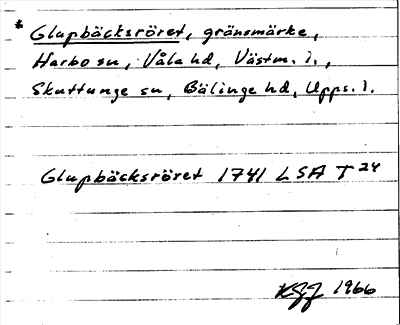 * Glupbäcksröret, gränsmärke,
Harbo sn, Våla hd, Västm. l.,
Skuttunge sn, Bälinge hd, Upps. l.
Glupbäcksröret 1741 LSA T 24
KGJ 1966